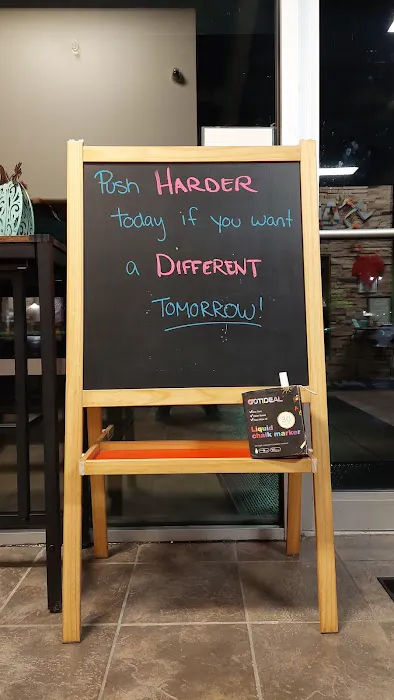 Push HARDER
today if you want
a DIFFERENT
TOMORROW!
GOTIDEAL
Liquid
chalk marker